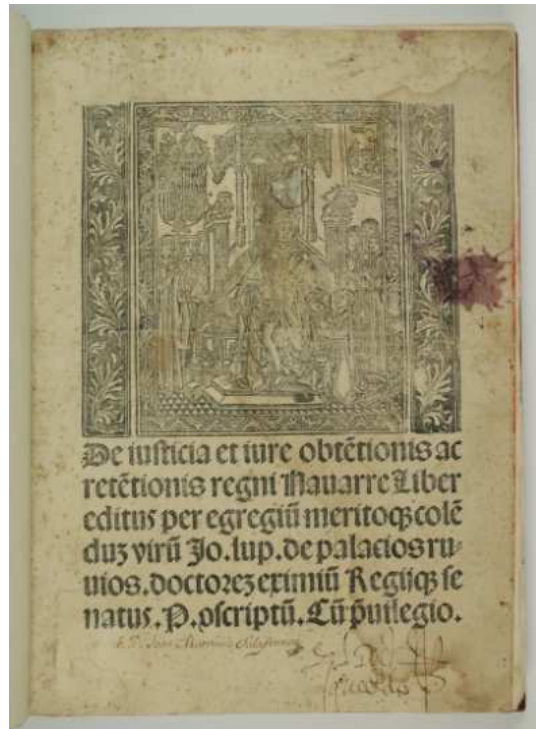 De iusticia et iure obtētionis ac
retētionis regni Nauarre Liber
editus per egregiū meritoqꝫ colē
duꝫ virū Jo. lup. de palacios ru⸗
uios. doctoreꝫ eximiū Regijqꝫ se
natus. P. ꝯscriptū. Cū p̄uilegio.